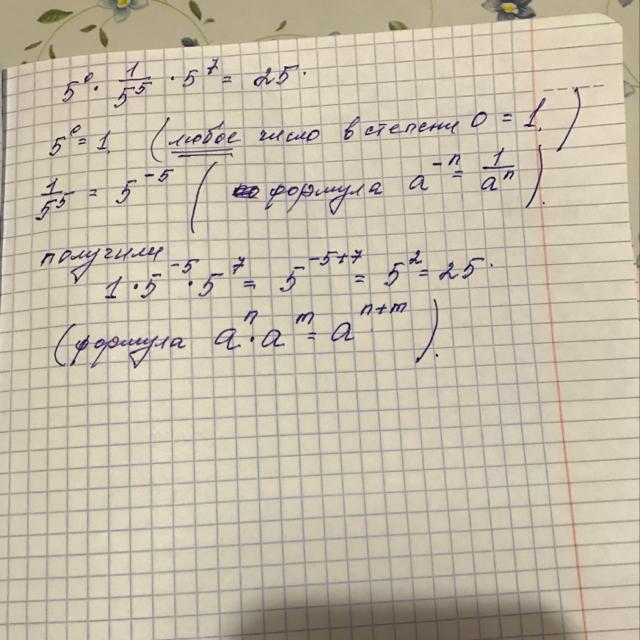 5⁰ · 1/5⁵ · 5⁷ = 25.
5⁰ = 1 (любое число в степени 0 = 1.)
1/5⁵ = 5⁻⁵ (формула a⁻ⁿ = 1/aⁿ).
получили
1 · 5⁻⁵ · 5⁷ = 5⁻⁵⁺⁷ = 5² = 25.
(формула aⁿ · aᵐ = aⁿ⁺ᵐ).